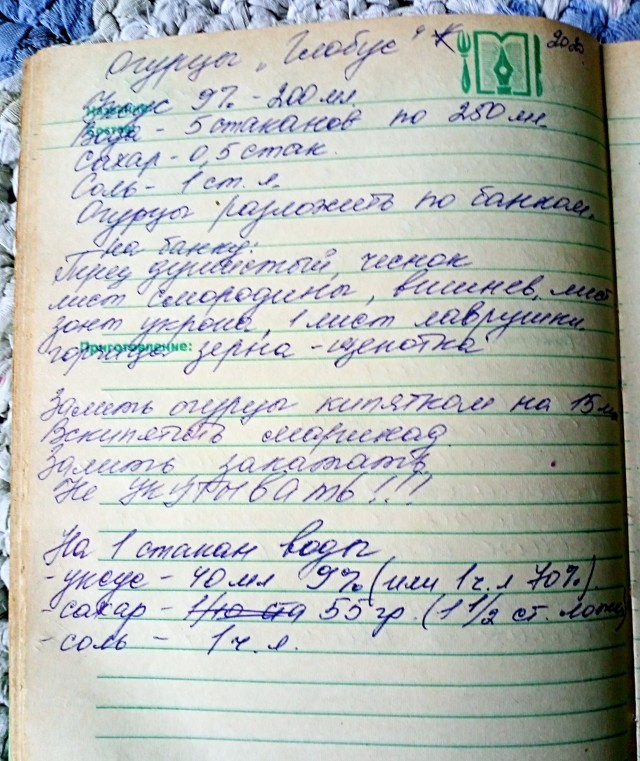 Огурцы „Глобус"
2020.
Уксус 9% - 200 мл.
Вода - 5 стаканов по 250 мл.
Сахар - 0,5 стак.
Соль - 1 ст. л.
Огурцы разложить по банкам.
на банку:
Перец душистый, чеснок
лист смородины, вишнев. лист
зонт укропа, 1 лист лаврушки
Приготовление:
горчица зерна - щепотка
Залить огурцы кипятком на 15 м
Вскипятить маринад
Залить закатать
Не укрывать!!!
На 1 стакан воды
- уксус - 40 мл 9% (или 1 ч. л 70%)
- сахар - 55 гр. (1 1/2 ст. ложк
- соль - 1 ч. л.